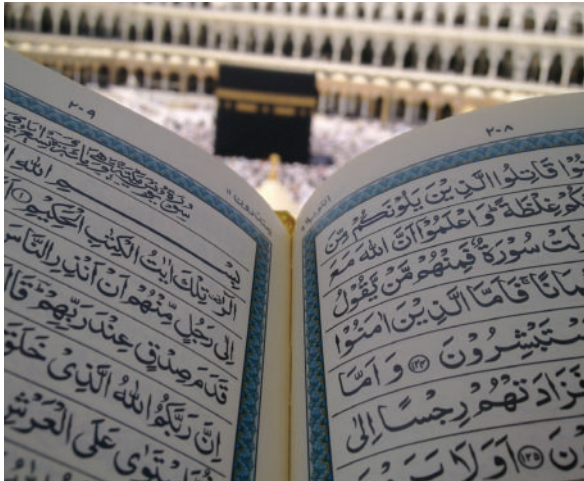 ۲۰۸
قَاتِلُوا الَّذِيْنَ يَلُوْنَكُمْ مِّنَ
كُمْ غِلْظَةً ؕ وَاعْلَمُوْۤا اَنَّ اللّٰهَ مَعَ
لَتْ سُوْرَةٌ فَمِنْهُمْ مَّنْ يَّقُوْلُ
مَانًا ۚ فَاَمَّا الَّذِيْنَ اٰمَنُوْا
سْتَبْشِرُوْنَ ۝۱۲۴ وَ اَمَّا
فَزَادَتْهُمْ رِجْسًا اِلٰى
۝۱۲۵ اَوَلَا
۲۰۹
بِسْمِ اللّٰهِ
الٓرٰ ۫ تِلْكَ اٰيٰتُ الْكِتٰبِ الْحَكِيْمِ ۝۱
اِلٰى رَجُلٍ مِّنْهُمْ اَنْ اَنْذِرِ النَّاسَ
قَدَمَ صِدْقٍ عِنْدَ رَبِّهِمْ ؕ قَالَ
اِنَّ رَبَّكُمُ اللّٰهُ الَّذِيْ خَلَقَ
اسْتَوٰى عَلَى الْعَرْشِ